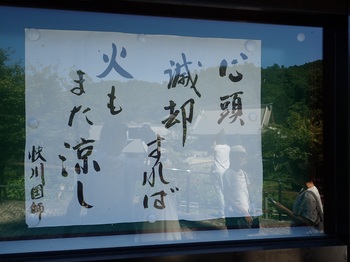 心頭
滅却すれば
火も
また涼し
快川国師